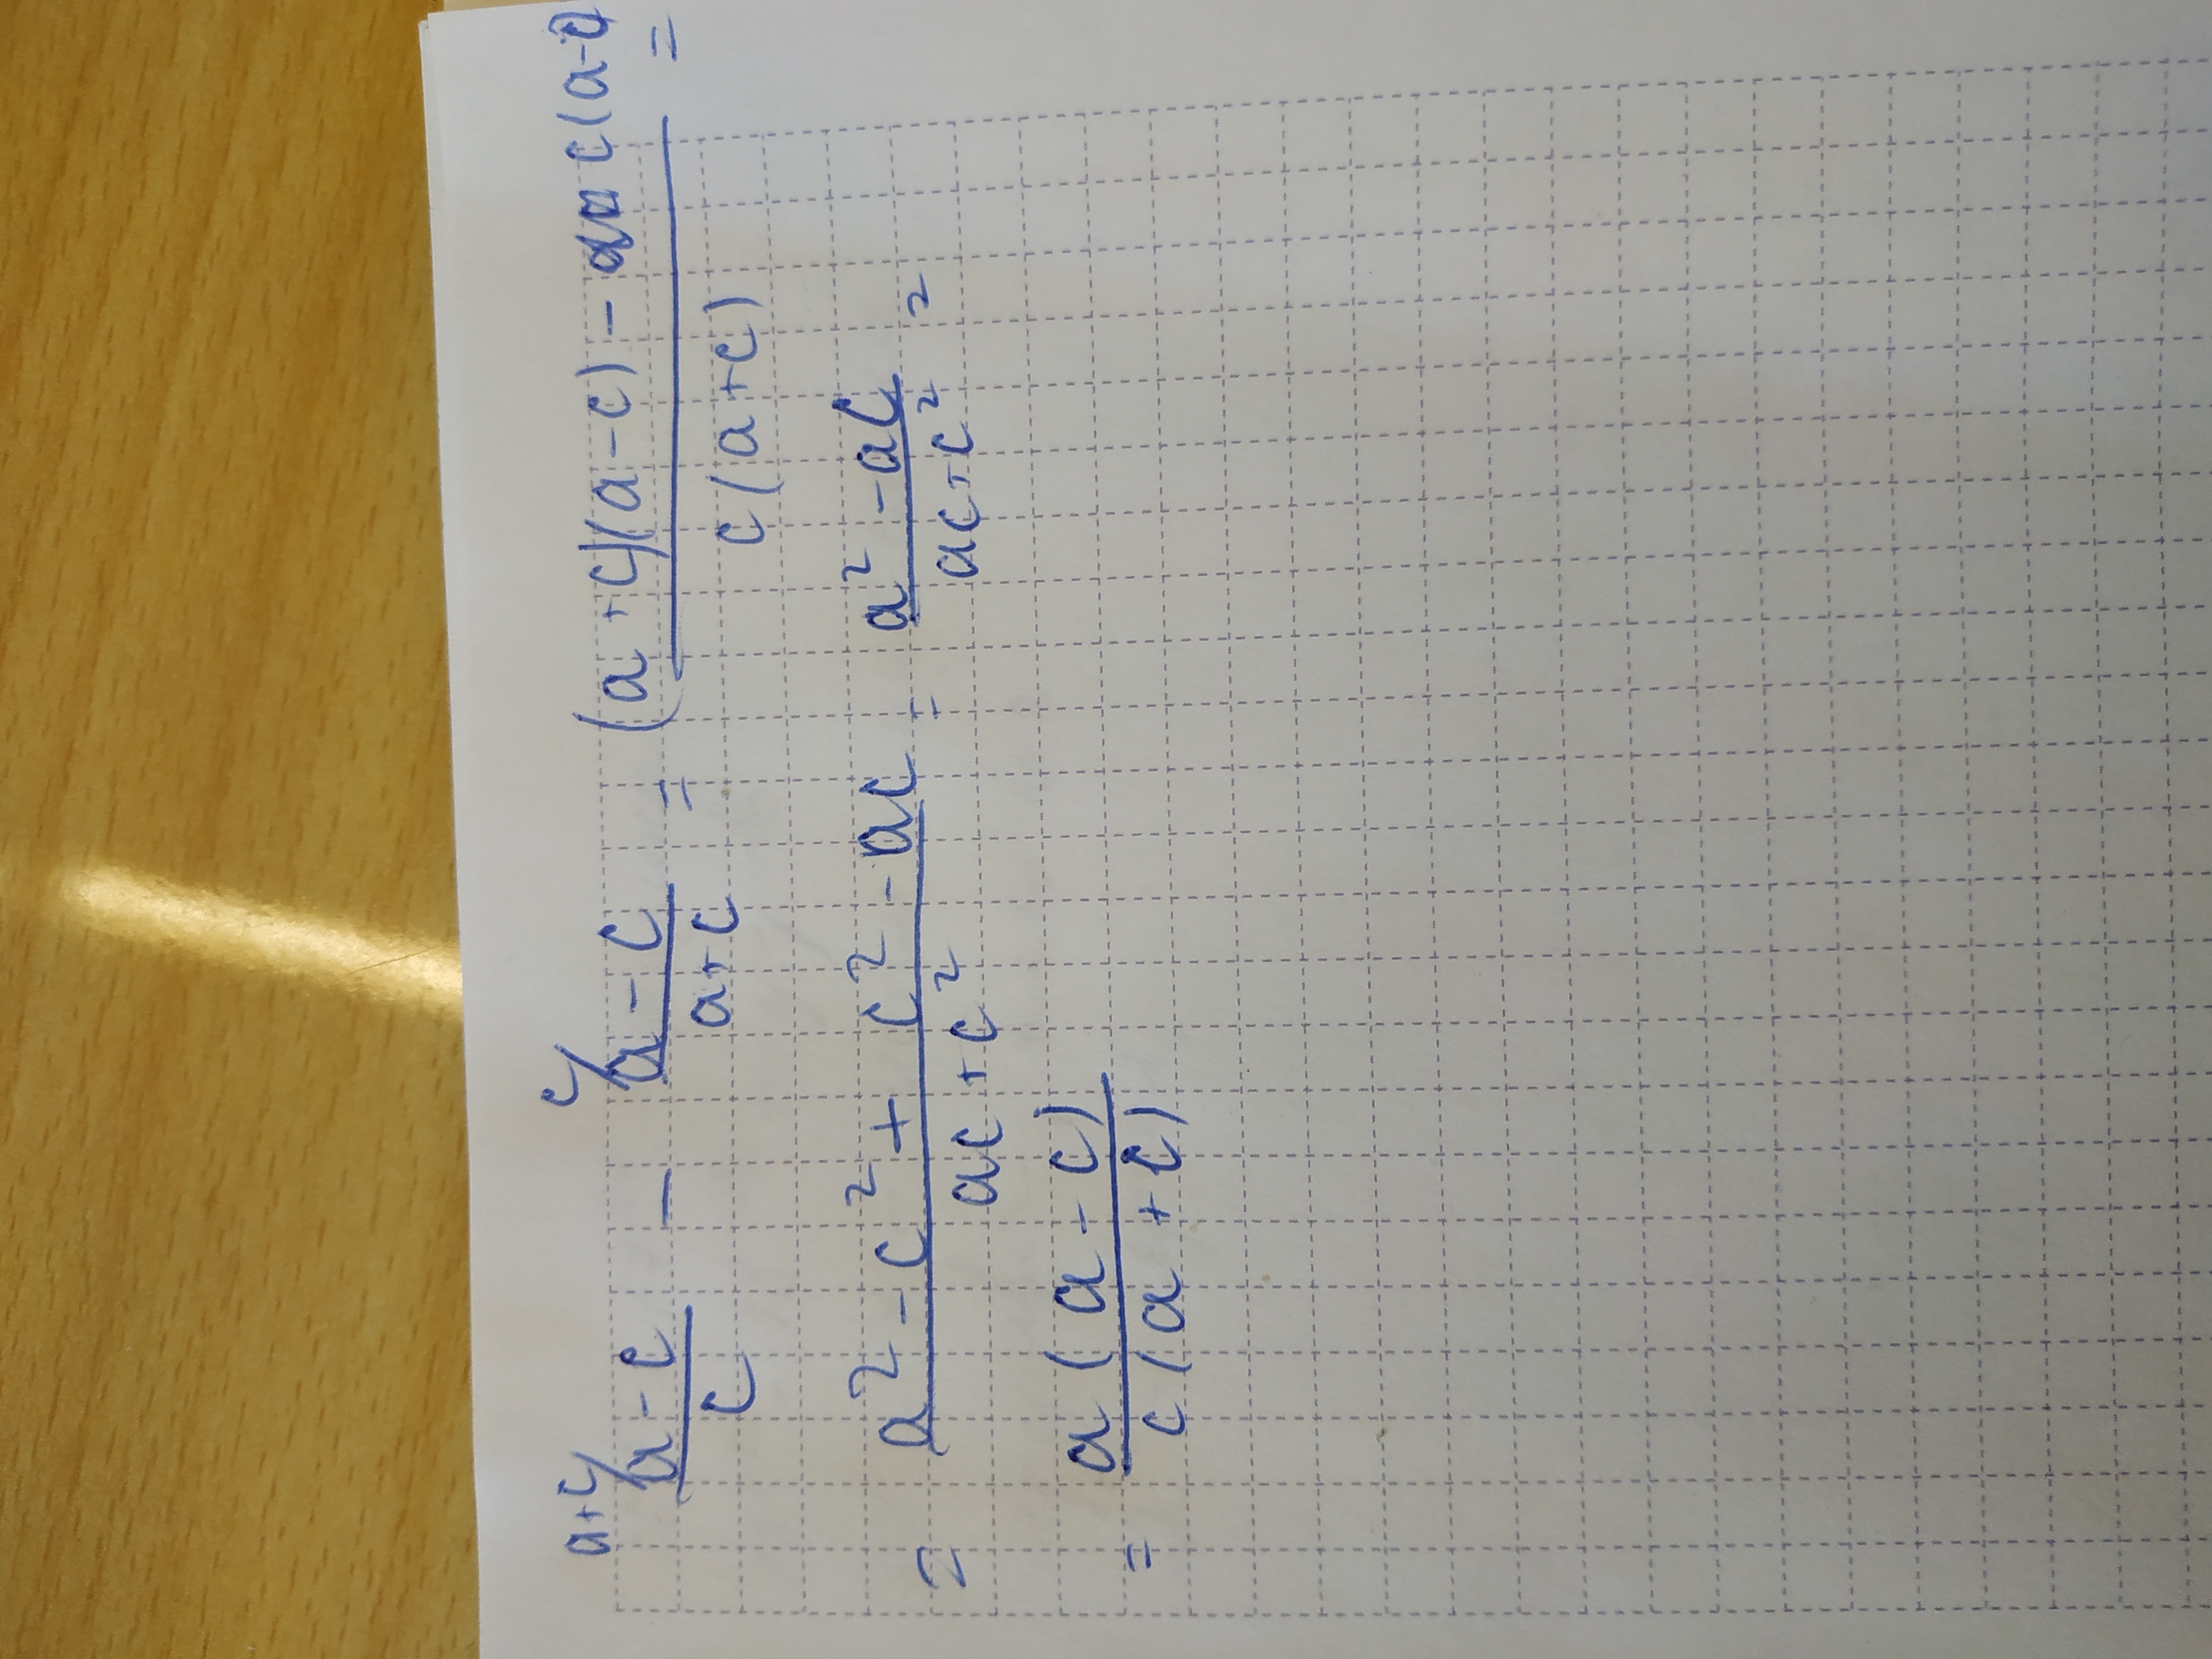 a+c/ (a-c)/c - c/ (a-c)/(a+c) = ((a+c)(a-c) - c(a-c))/(c(a+c)) =
= (a² - c² + c² - ac)/(ac + c²) = (a² - ac)/(ac + c²) =
= (a(a - c))/(c(a + c))